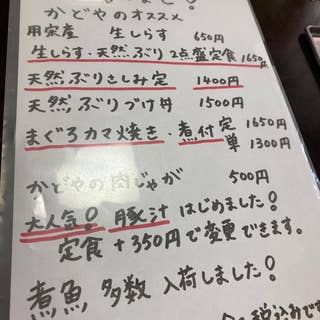 かどやのオススメ
用宗産 生しらす 650円
生しらす・天然ぶり2点盛定食 1650円
天然ぶりさしみ定 1400円
天然ぶりづけ丼 1500円
まぐろカマ焼き・煮付定 1650円
単 1300円
かどやの肉じゃが 500円
大人気! 豚汁 はじめました!
定食 +350円で変更できます。
煮魚 多数 入荷しました!
税込みです